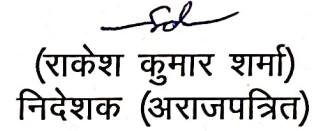 Sd
(राकेश कुमार शर्मा)
निदेशक (अराजपत्रित)